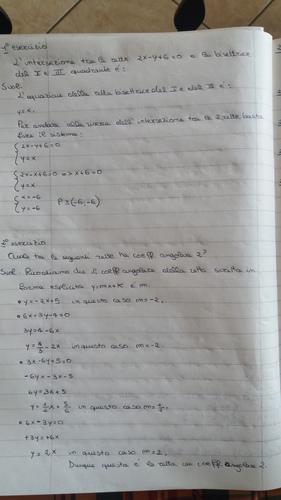 1º esercizio
L'intersezione tra la retta 2x-y+6=0 e la bisettrice
del I e III quadrante è:
Svol.
L'equazione della alla bisettrice del I e del III è:
y=x.
Per andare alla ricerca dell'intersezione tra le 2 rette, basta
fare il sistema:
{2x-y+6=0
{y=x
{2x-x+6=0 => x+6=0
{y=x
{x=-6
{y=-6 P≡(-6;-6)
2º esercizio
Quale tra le seguenti rette ha coeff. angolare 2?
Svol. Ricordiamo che il coeff. angolare della retta scritta in
forma esplicita y=mx+k è m.
• y=-2x+5 in questo caso m=-2.
• 6x+3y-4=0
3y=4-6x
y=4/3-2x in questo caso m=-2.
• 3x-6y+5=0
-6y=-3x-5
6y=3x+5
y=1/2x+5/6 in questo caso m=1/2.
• 6x-3y=0
+3y=+6x
y=2x in questo caso m=2.
Dunque questa è la retta con coeff. angolare 2.